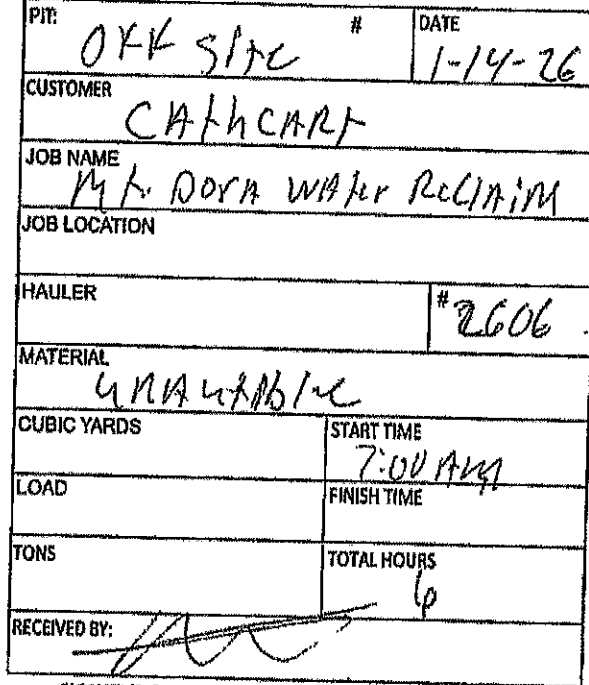 PIT: OFF SITE #
DATE 1-14-26
CUSTOMER CATHCART
JOB NAME Mt. DORA WATER RECLAIM
JOB LOCATION
HAULER # 2606
MATERIAL
CUBIC YARDS
START TIME 7:00 AM
LOAD
FINISH TIME
TONS
TOTAL HOURS 6
RECEIVED BY: